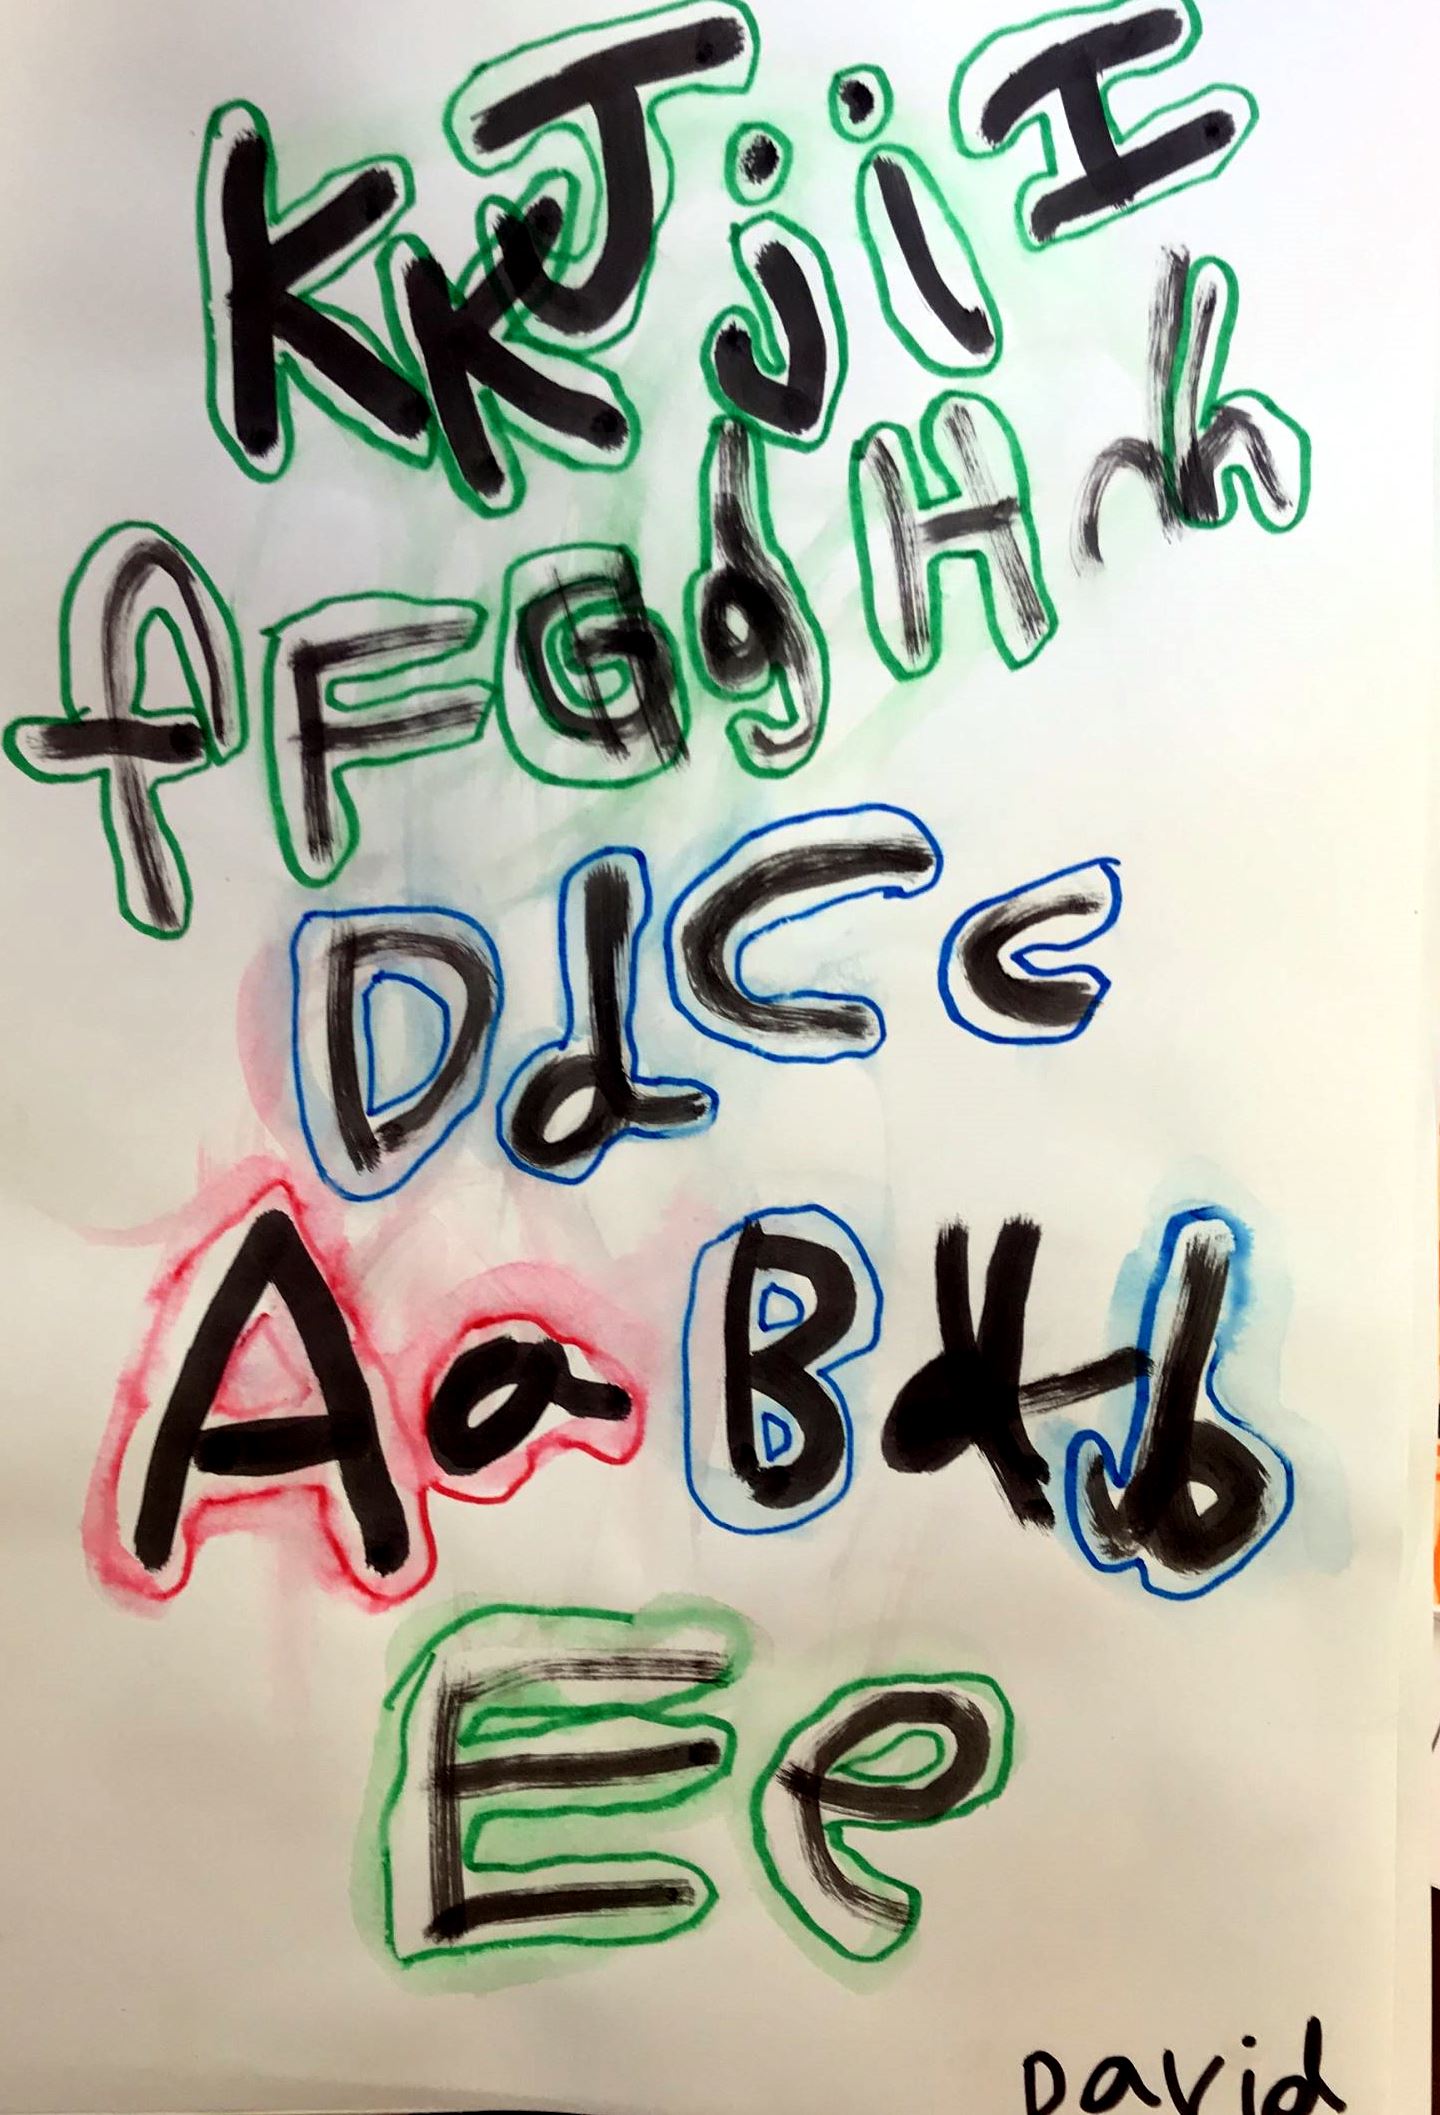 K k J j i I
f F G g H h
D d C c
A a B b
E e
David